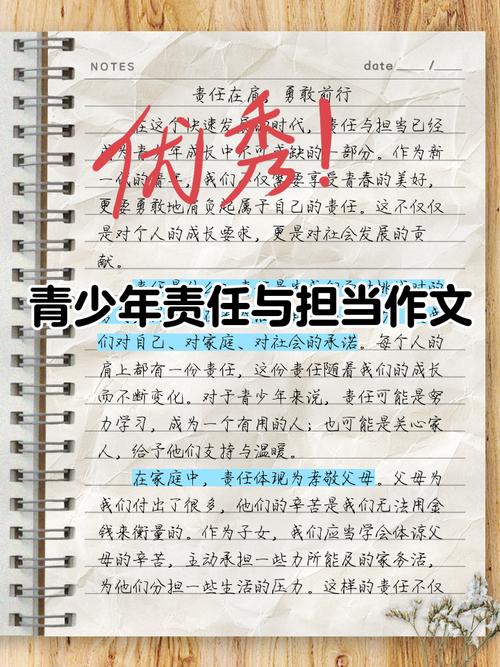 NOTES
date ___ / ___
责任在肩 勇敢前行
优秀!
在这个快速发展的时代,责任与担当已经
成为青少年成长中不可或缺的一部分。作为新
一代的青年,我们不仅需要享受青春的美好,
更要勇敢地肩负起属于自己的责任。这不仅仅
是对个人的成长要求,更是对社会发展的贡
献。
青少年责任与担当作文
们对自己、对家庭、对社会的承诺。每个人的
肩上都有一份责任,这份责任随着我们的成长
而不断变化。对于青少年来说,责任可能是努
力学习,成为一个有用的人;也可能是关心家
人,给予他们支持与温暖。
在家庭中,责任体现为孝敬父母。父母为
我们付出了很多,他们的辛苦是我们无法用金
钱来衡量的。作为子女,我们应当学会体谅父
母的辛苦,主动承担一些力所能及的家务活,
为他们分担一些生活的压力。这样的责任不仅